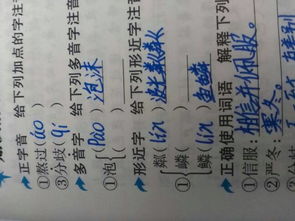 正字音 给下列加点的字注音
①熬过(áo)
③分歧(qí)
多音字 给下列多音字注音
①泡 (pào) 泡沫
( )
形近字 给下列形近字注音
粼(lín) 波光粼粼
①嶙( )
鳞(lín) 鱼鳞
正确使用词语 解释下列
①信服：相信并佩服。
②严冬：